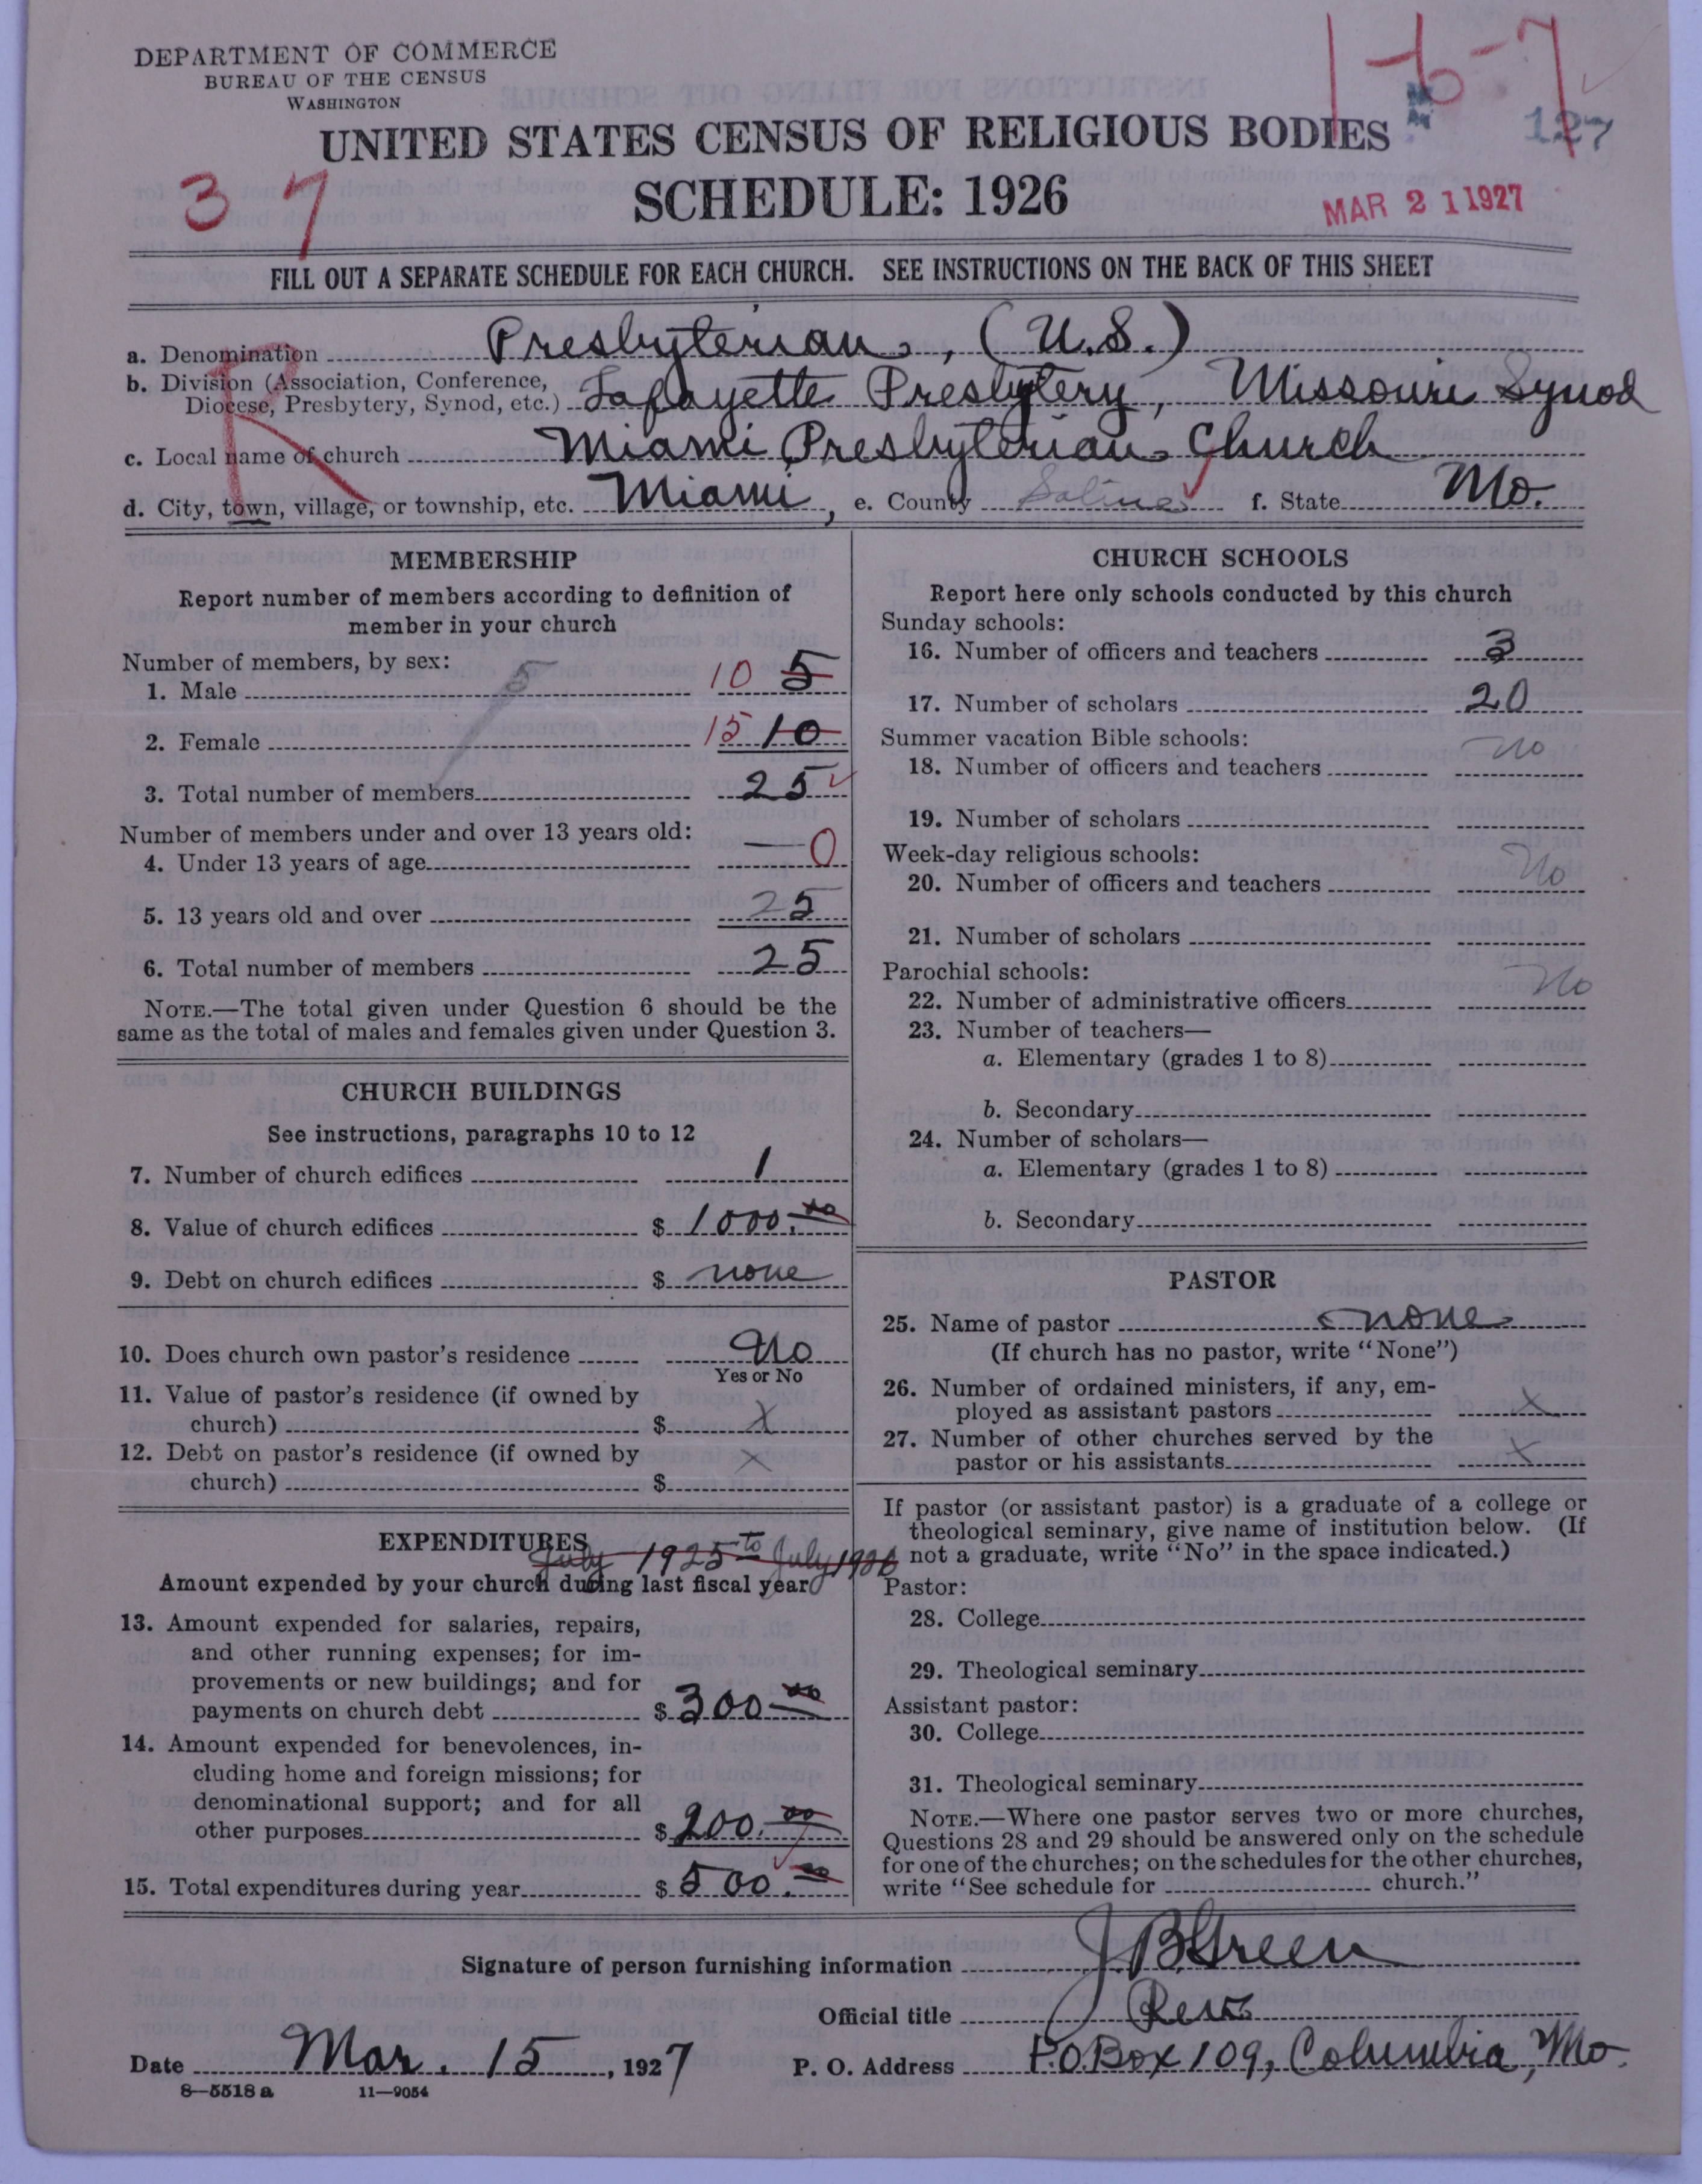 DEPARTMENT OF COMMERCE
BUREAU OF THE CENSUS
WASHINGTON
1-6-7
127
UNITED STATES CENSUS OF RELIGIOUS BODIES
37
SCHEDULE: 1926
MAR 21 1927
FILL OUT A SEPARATE SCHEDULE FOR EACH CHURCH. SEE INSTRUCTIONS ON THE BACK OF THIS SHEET
R
a. Denomination Presbyterian, (U.S.)
b. Division (Association, Conference, Diocese, Presbytery, Synod, etc.) Lafayette Presbytery, Missouri Synod
c. Local name of church Miami Presbyterian Church
d. City, town, village, or township, etc. Miami, e. County Saline f. State Mo.
MEMBERSHIP
Report number of members according to definition of
member in your church
Number of members, by sex: 5
1. Male 10 5
2. Female 15 10
3. Total number of members 25
Number of members under and over 13 years old:
4. Under 13 years of age — 0
5. 13 years old and over 25
6. Total number of members 25
NOTE.—The total given under Question 6 should be the
same as the total of males and females given under Question 3.
CHURCH BUILDINGS
See instructions, paragraphs 10 to 12
7. Number of church edifices 1
8. Value of church edifices $ 1000.00
9. Debt on church edifices $ none
10. Does church own pastor's residence No
Yes or No
11. Value of pastor's residence (if owned by
church) $ X
12. Debt on pastor's residence (if owned by
church) $ X
EXPENDITURES
July 1925 to July 1926
Amount expended by your church during last fiscal year
13. Amount expended for salaries, repairs,
and other running expenses; for im-
provements or new buildings; and for
payments on church debt $ 300.00
14. Amount expended for benevolences, in-
cluding home and foreign missions; for
denominational support; and for all
other purposes $ 200.00
15. Total expenditures during year $ 500.00
CHURCH SCHOOLS
Report here only schools conducted by this church
Sunday schools:
16. Number of officers and teachers 3
17. Number of scholars 20
Summer vacation Bible schools: no
18. Number of officers and teachers
19. Number of scholars
Week-day religious schools:
20. Number of officers and teachers No
21. Number of scholars
Parochial schools: No
22. Number of administrative officers
23. Number of teachers—
a. Elementary (grades 1 to 8)
b. Secondary
24. Number of scholars—
a. Elementary (grades 1 to 8)
b. Secondary
PASTOR
25. Name of pastor none
(If church has no pastor, write "None")
26. Number of ordained ministers, if any, em-
ployed as assistant pastors X
27. Number of other churches served by the
pastor or his assistants X
If pastor (or assistant pastor) is a graduate of a college or
theological seminary, give name of institution below. (If
not a graduate, write "No" in the space indicated.)
Pastor:
28. College
29. Theological seminary
Assistant pastor:
30. College
31. Theological seminary
NOTE.—Where one pastor serves two or more churches,
Questions 28 and 29 should be answered only on the schedule
for one of the churches; on the schedules for the other churches,
write "See schedule for church."
Signature of person furnishing information J B Green
Official title Rev.
Date Mar. 15, 1927 P. O. Address P.O. Box 109, Columbia, Mo.
8—5518 a 11—9054